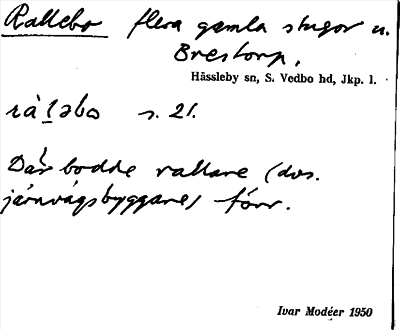 Rallebo flera gamla stugor u.
Brestorp.
Hässleby sn, S. Vedbo hd, Jkp. l.
s. 21.
Där bodde rallare (dvs.
järnvägsbyggare) förr.
Ivar Modéer 1950